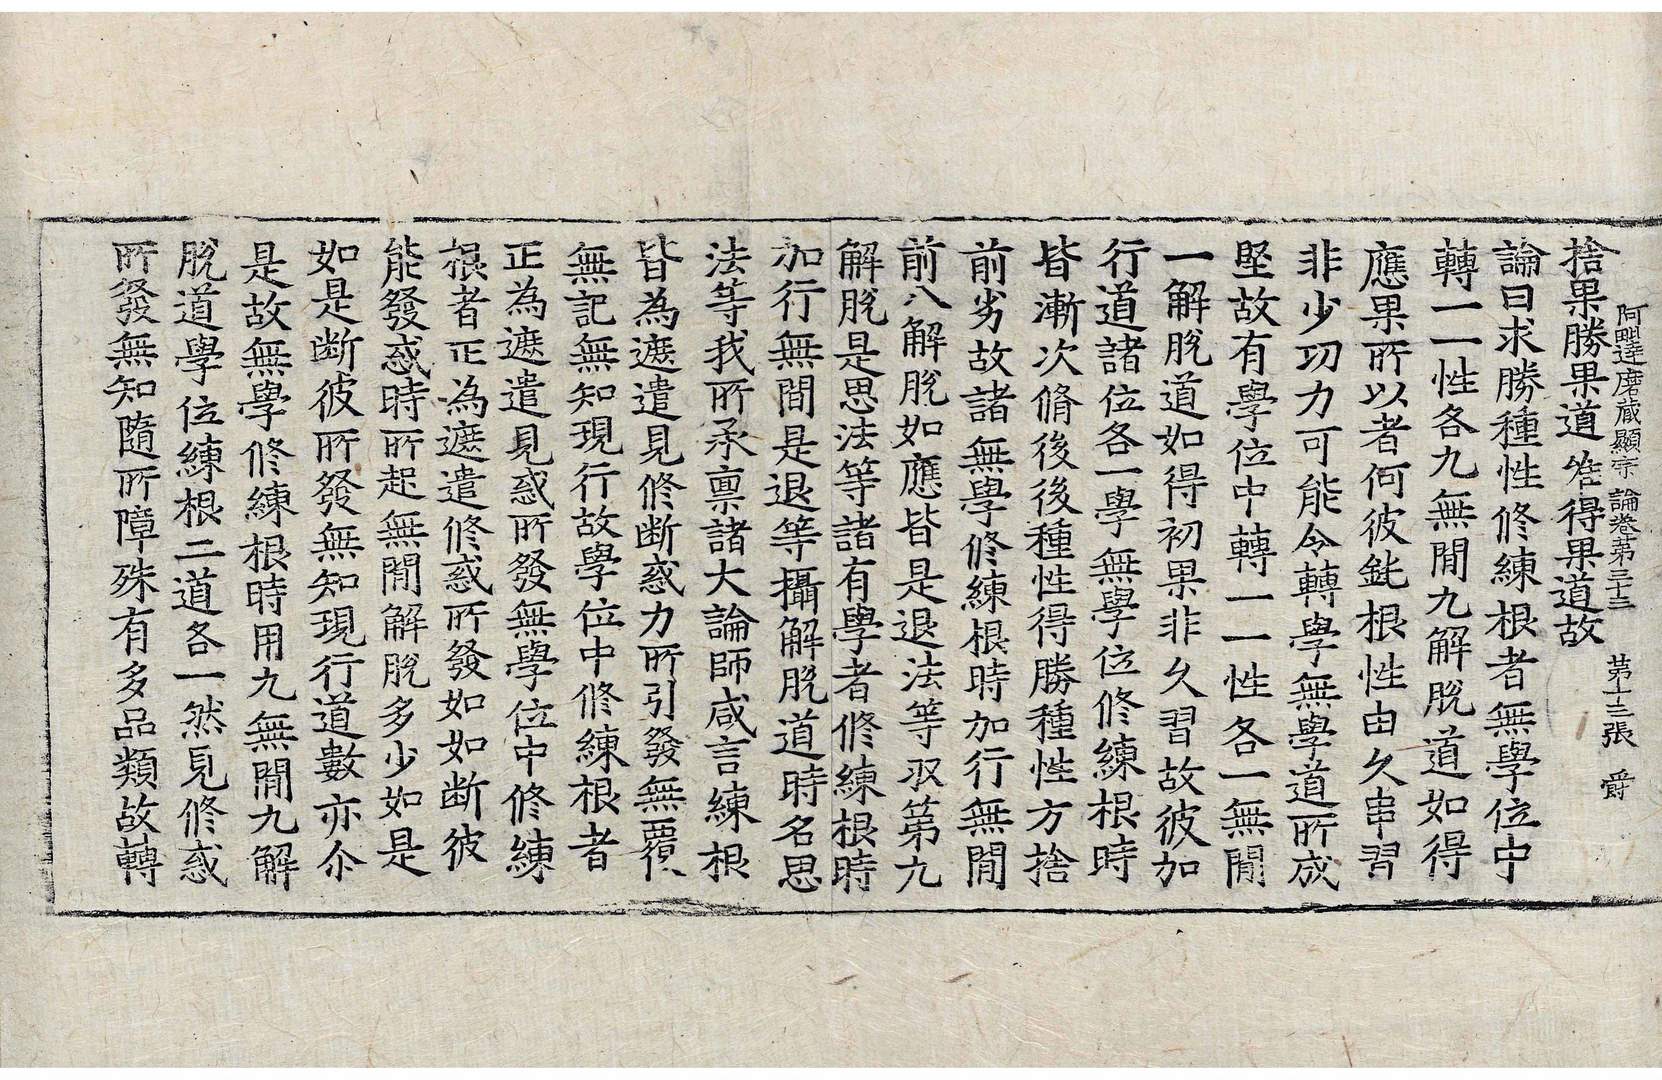 阿毗達磨藏顯宗論卷第三十三 第十三張 爵
捨果勝果道唯得果道故
論曰求勝種性修練根者無學位中
轉一一性各九無閒九解脫道如得
應果所以者何彼鈍根性由久串習
非少功力可能令轉學無學道所成
堅故有學位中轉一一性各一無閒
一解脫道如得初果非久習故彼加
行道諸位各一學無學位修練根時
皆漸次脩後後種性得勝種性方捨
前劣故諸無學修練根時加行無閒
前八解脫如應皆是退法等収第九
解脫是思法等諸有學者修練根時
加行無閒是退等攝解脫道時名思
法等我所承稟諸大論師咸言練根
皆為遮遣見修断惑力所引發無覆
無記無知現行故學位中修練根者
正為遮遣見惑所發無學位中修練
根者正為遮遣修惑所發如如断彼
能發惑時所起無閒解脫多少如是
如是断彼所發無知現行道數亦尒
是故無學修練根時用九無閒九解
脫道學位練根二道各一然見修惑
所發無知隨所障殊有多品類故轉